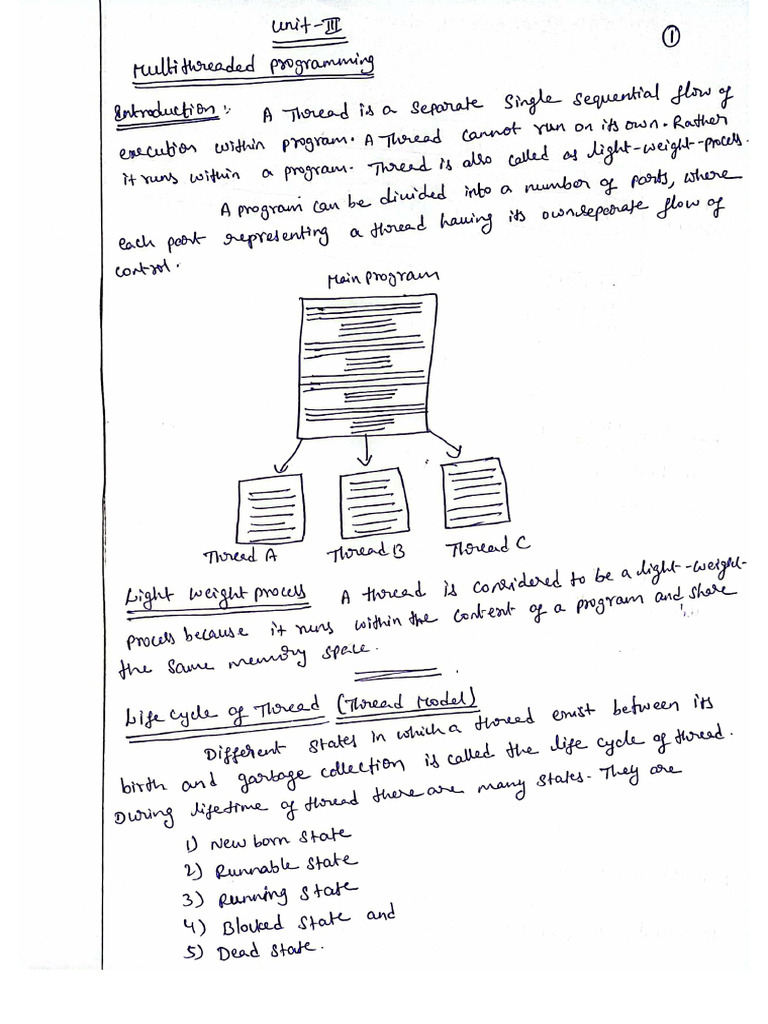 Unit-III
①
Multithreaded programming
Introduction:- A Thread is a separate single sequential flow of
execution within program. A Thread cannot run on its own. Rather
it runs within a program. Thread is also called as light-weight-process.
A program can be divided into a number of parts, where
each part representing a thread having its own separate flow of
control.
Main program
Thread A Thread B Thread C
Light weight process A thread is considered to be a light-weight-
process because it runs within the content of a program and share
the same memory space.
Life cycle of Thread (Thread Model)
Different states in which a thread exist between its
birth and garbage collection is called the life cycle of thread.
During lifetime of thread there are many states. They are
1) New born state
2) Runnable state
3) Running state
4) Blocked state and
5) Dead state.